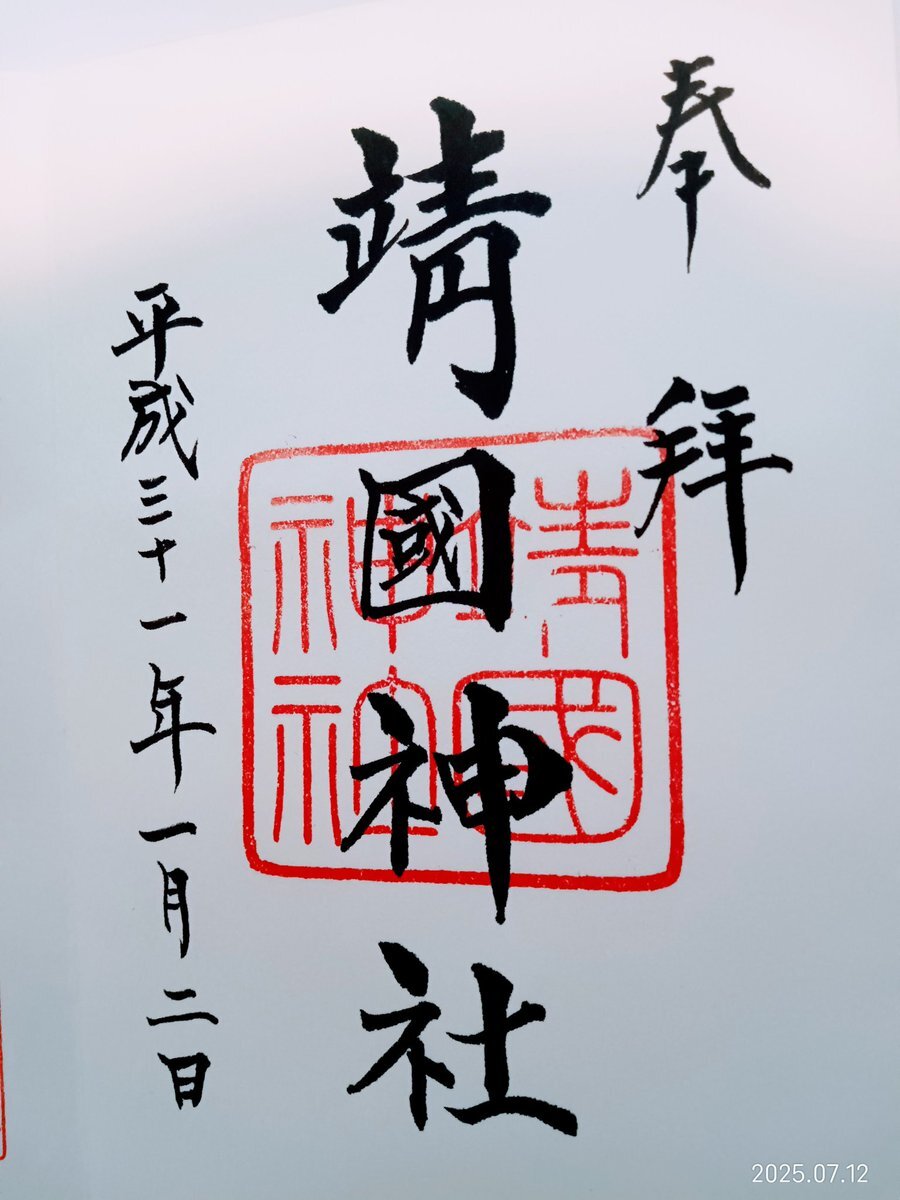 奉拝
靖國神社
平成三十一年一月二日
靖國
神社
2025.07.12